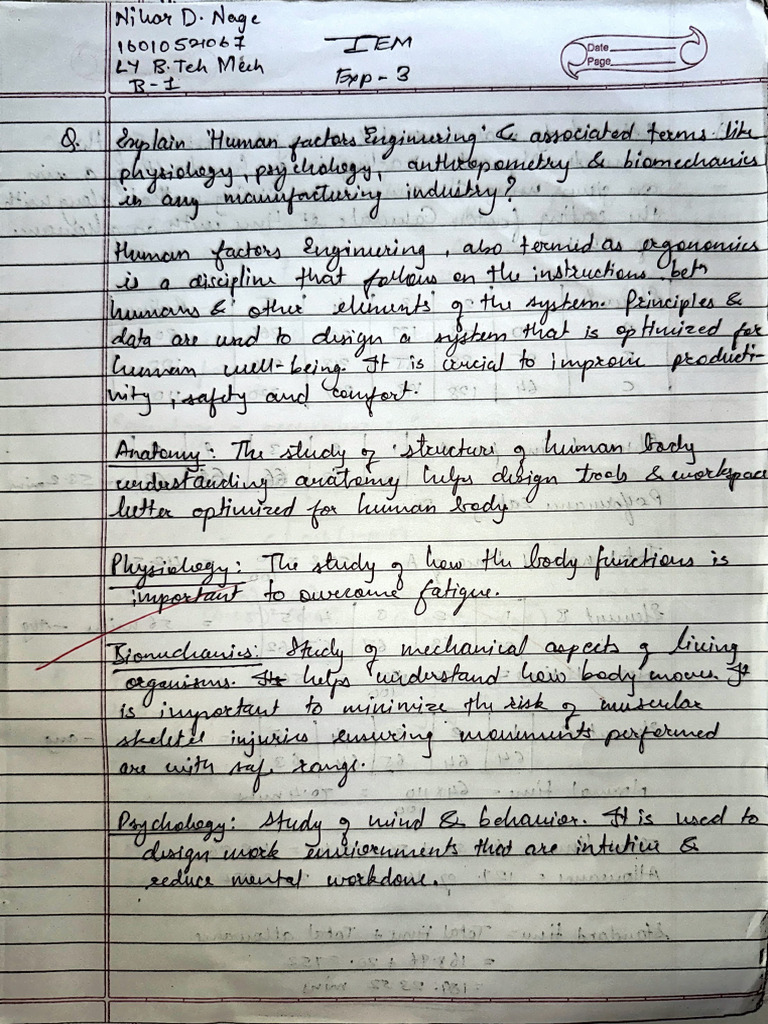 Nihar D. Nage
16010521067
LY B.Teh Mech
B-1
IEM
Exp-3
Date
Page
Q. Explain 'Human factors Engineering' & associated terms like
physiology, psychology, anthropometry & biomechanics
in any manufacturing industry?
Human factors Engineering, also termed as ergonomics
is a discipline that follows on the instructions betn
humans & other elements of the system. Principles &
data are used to design a system that is optimized for
human well-being. It is crucial to improve producti-
vity, safety and comfort.
Anatomy: The study of structure of human body
understanding anatomy helps design tools & workspace
better optimized for human body
Physiology: The study of how the body functions is
important to overcome fatigue.
Biomechanics: Study of mechanical aspects of living
organisms. It helps understand how body moves. It
is important to minimize the risk of muscular
skeletel injuries ensuring movements performed
are with safe range.
Psychology: Study of mind & behavior. It is used to
design work enviornments that are intutive &
reduce mental workdone.